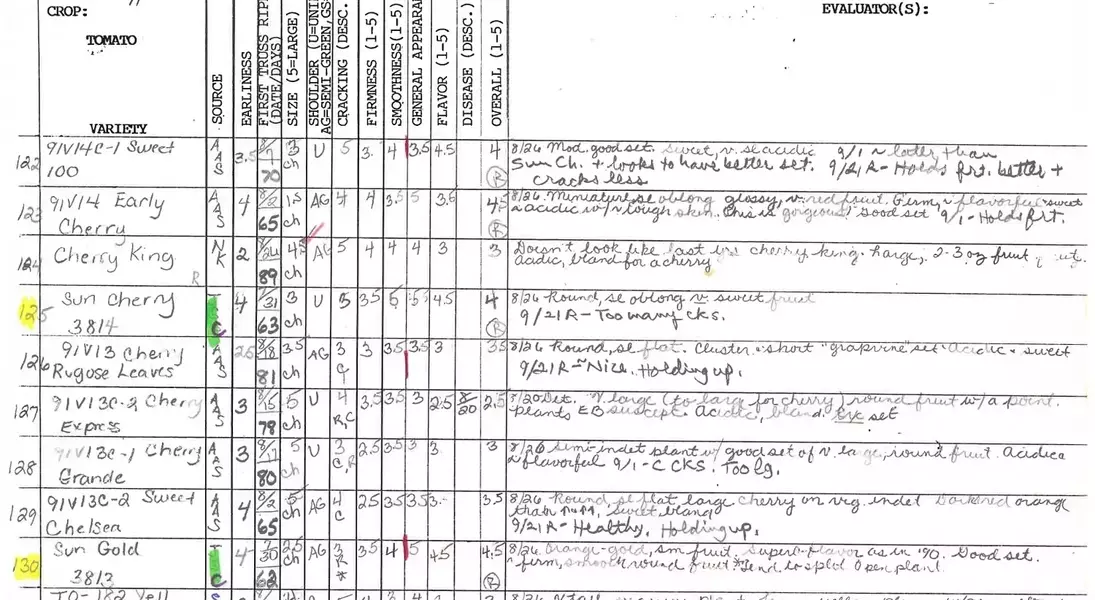 CROP:
TOMATO
VARIETY
SOURCE
EARLINESS
FIRST TRUSS RIPE (DATE/DAYS)
SIZE (5=LARGE)
SHOULDER (U=UNI
AG=SEMI-GREEN,GS
CRACKING (DESC.
FIRMNESS (1-5)
SMOOTHNESS(1-5)
GENERAL APPEARA
FLAVOR (1-5)
DISEASE (DESC.)
OVERALL (1-5)
EVALUATOR(S):
122 91V14C-1 Sweet 100 AAS 3.5 8/7 70 3 ch U 5 3. 4 3.5 4.5 4 R
8/26 Mod. good set. Sweet, v. sl acidic 9/1 ~ later than
Sun Ch. + looks to have better set. 9/21 R- Holds frt. better +
cracks less
123 91V14 Early Cherry AAS 4 8/2 65 1.5 ch AG 4 3.5 5 R
8/26. Miniature, sl oblong glossy, v. red fruit. Firm, flavorful sweet
acidic w/ v tough skin. This is gorgeous! Good set 9/1- Holds frt.
124 Cherry King R NK 2 8/26 89 4.5 ch AG 5 4 4 4 3 3
Doesn't look like last yrs cherry king. Large, 2-3 oz fruit
Acidic, bland for a cherry
125 Sun Cherry 3814 T C 4 7/31 63 3 ch U 5 3.5 5 5 4.5 4 R
8/26 Round, sl oblong v. sweet fruit
9/21R- Too many cks.
126 91V13 Cherry Rugose Leaves AAS 2.5 8/18 81 3.5 ch AG 3 C 3 3.5 3.5 3 3.5
8/26 Round, sl flat. Cluster - short "grapevine" set Acidic - sweet
9/21R- Nice. Holding up.
127 91V13C-2 Cherry Express AAS 3 8/15 78 5 ch U 4 R,C 3.5 3.5 3 2.5 8/20 2.5
8/20 Det. V large (to larg for cherry) round fruit w/ a point.
plants EB suscept. Acidic, bland. Exc set
128 91V13C-1 Cherry Grande AAS 3 8/17 80 5 ch U 3 C,R 2.5 3.5 3 3 3
8/26 Semi-indet plant w/ good set of v. large, round fruit. Acidic
flavorful 9/1- C CKS. Too lg.
129 91V13C-2 Sweet Chelsea AAS 4 8/2 65 5 ch AG 4 C 2.5 3.5 3.5 3. 3.5
8/26 Round, sl flat large cherry on vig. indet Darkred orange
than sweet bland
9/21R- Healthy, Holding up.
130 Sun Gold 3813 T C 4 7/30 62 2.5 ch AG 3 R * 3.5 4 5 4.5 4.5 R
8/26 Orange-gold, sm fruit. Superb flavor as in '90. Good set.
firm, smooth round fruit *Tend to split Open plant.
TO-182 Yell